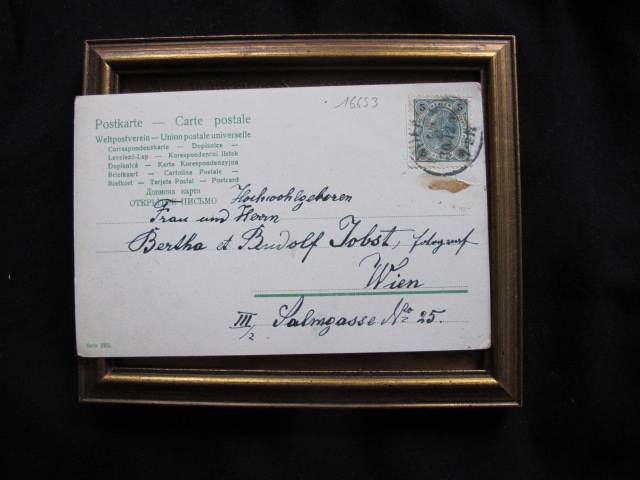 16653
Postkarte — Carte postale
Weltpostverein — Union postale universelle
Correspondenzkarte — Dopisnice
Levelező-Lap — Korespondentni listek
Dopisnica — Karta Korespondencyjna
Briefkaart — Cartolina Postale —
Brefkort — Tarjeta Postal — Postcard
Дописна карта
ОТКРЫТОЕ ПИСЬМО
5 5
Hochwohlgeboren
Frau und Herrn
Bertha et Rudolf Jobst, fotograf
Wien
III/2 Salmgasse No 25.